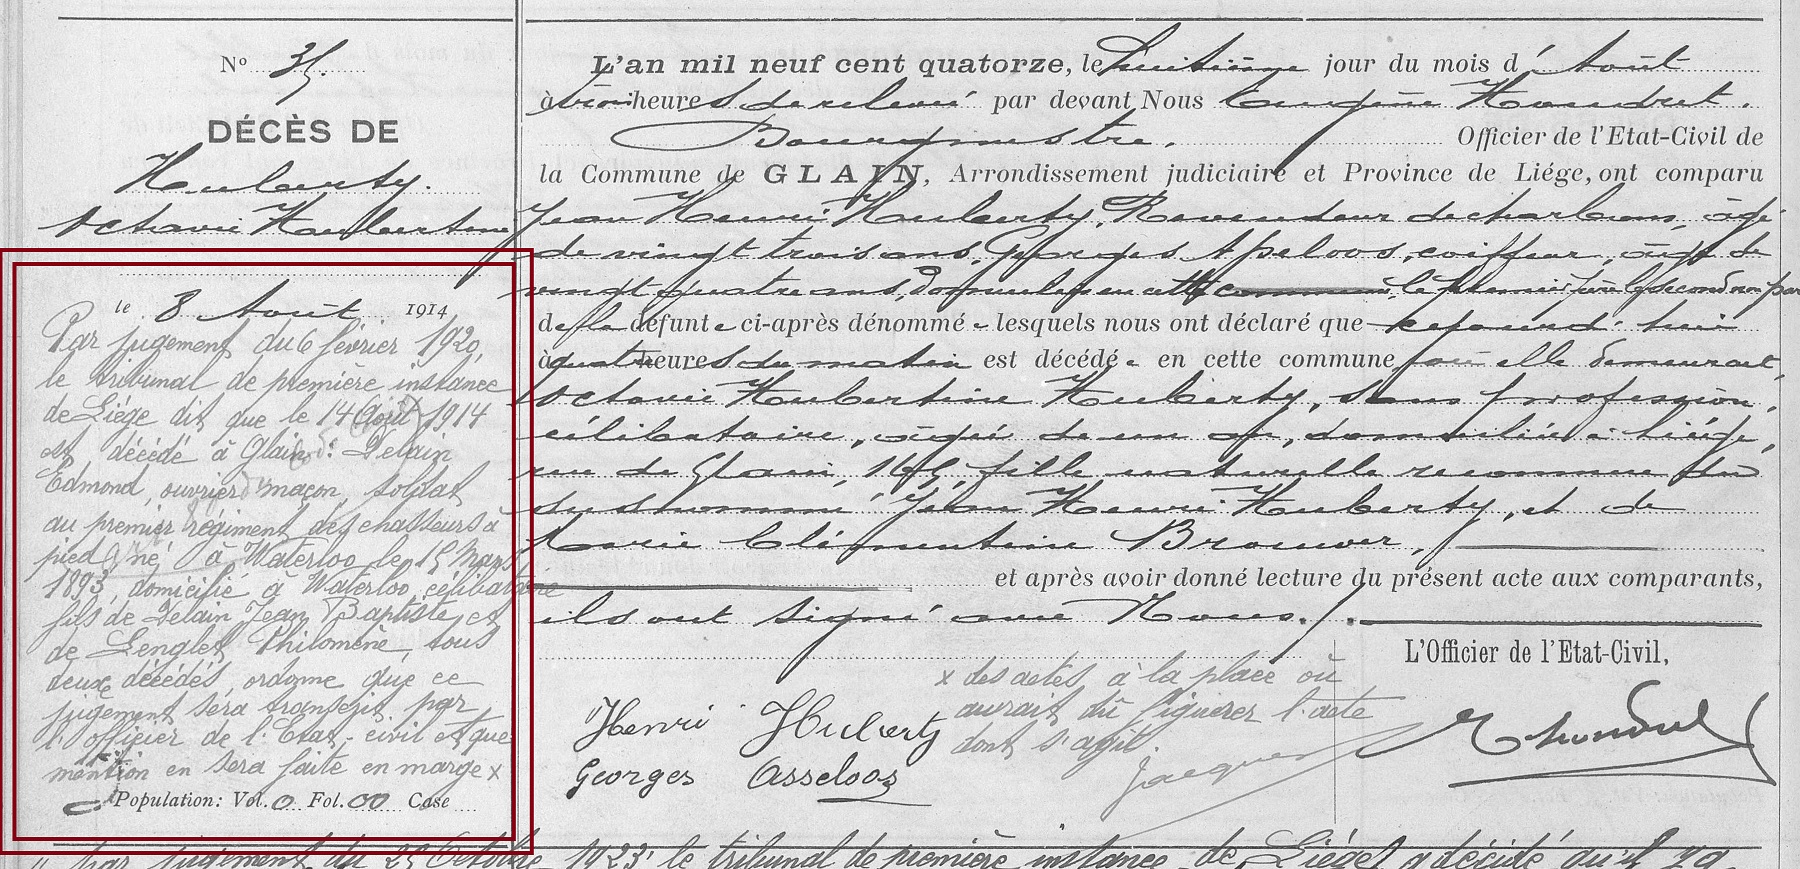 N° 35.
DÉCÈS DE
Huberty.
Octavie Hubertine
le 8 Août 1914
Par jugement du 6 février 1920,
le tribunal de première instance
de Liége dit que le 14 Août 1914
est décédé à Glain : Delain
Edmond, ouvrier maçon, soldat
au premier régiment des chasseurs à
pied, né à Waterloo le 15 Mars
1893, domicilié à Waterloo, célibataire
fils de Delain Jean Baptiste et
de Lenglet Philomène, tous
deux décédés, ordonne que ce
jugement sera transcrit par
l'officier de l'Etat-civil et que
mention en sera faite en marge x
Population: Vol. 0 Fol. 00 Case
L'an mil neuf cent quatorze, le huitième jour du mois d'Août
à trois heures de relevée par devant Nous Eugène Hondret.
Bourgmestre. Officier de l'Etat-Civil de
la Commune de GLAIN, Arrondissement judiciaire et Province de Liége, ont comparu
Jean Henri Huberty, Revendeur de charbons, âgé
de vingt trois ans, Georges Apeloos, coiffeur, âgé de
vingt quatre ans, domiciliés en cette commune, le premier père le second non parent
de la défunte ci-après dénommée lesquels nous ont déclaré que cejourd'hui
à quatre heures du matin est décédée en cette commune, où elle demeurait,
Octavie Hubertine Huberty, sans profession,
célibataire, âgée de un an, domiciliée à Liége,
rue de Glain, 165, fille naturelle reconnue du
susnommé Jean Henri Huberty, et de
Marie Clémentine Brouwer,
et après avoir donné lecture du présent acte aux comparants,
ils ont signé avec Nous.
L'Officier de l'Etat-Civil,
x des actes, à la place où
aurait dû figurer l'acte
dont s'agit.
Jacques
Henri Huberty
Georges Asseloos
par jugement du 25 Octobre 1923 le tribunal de première instance de Liége a décidé qu'il y a